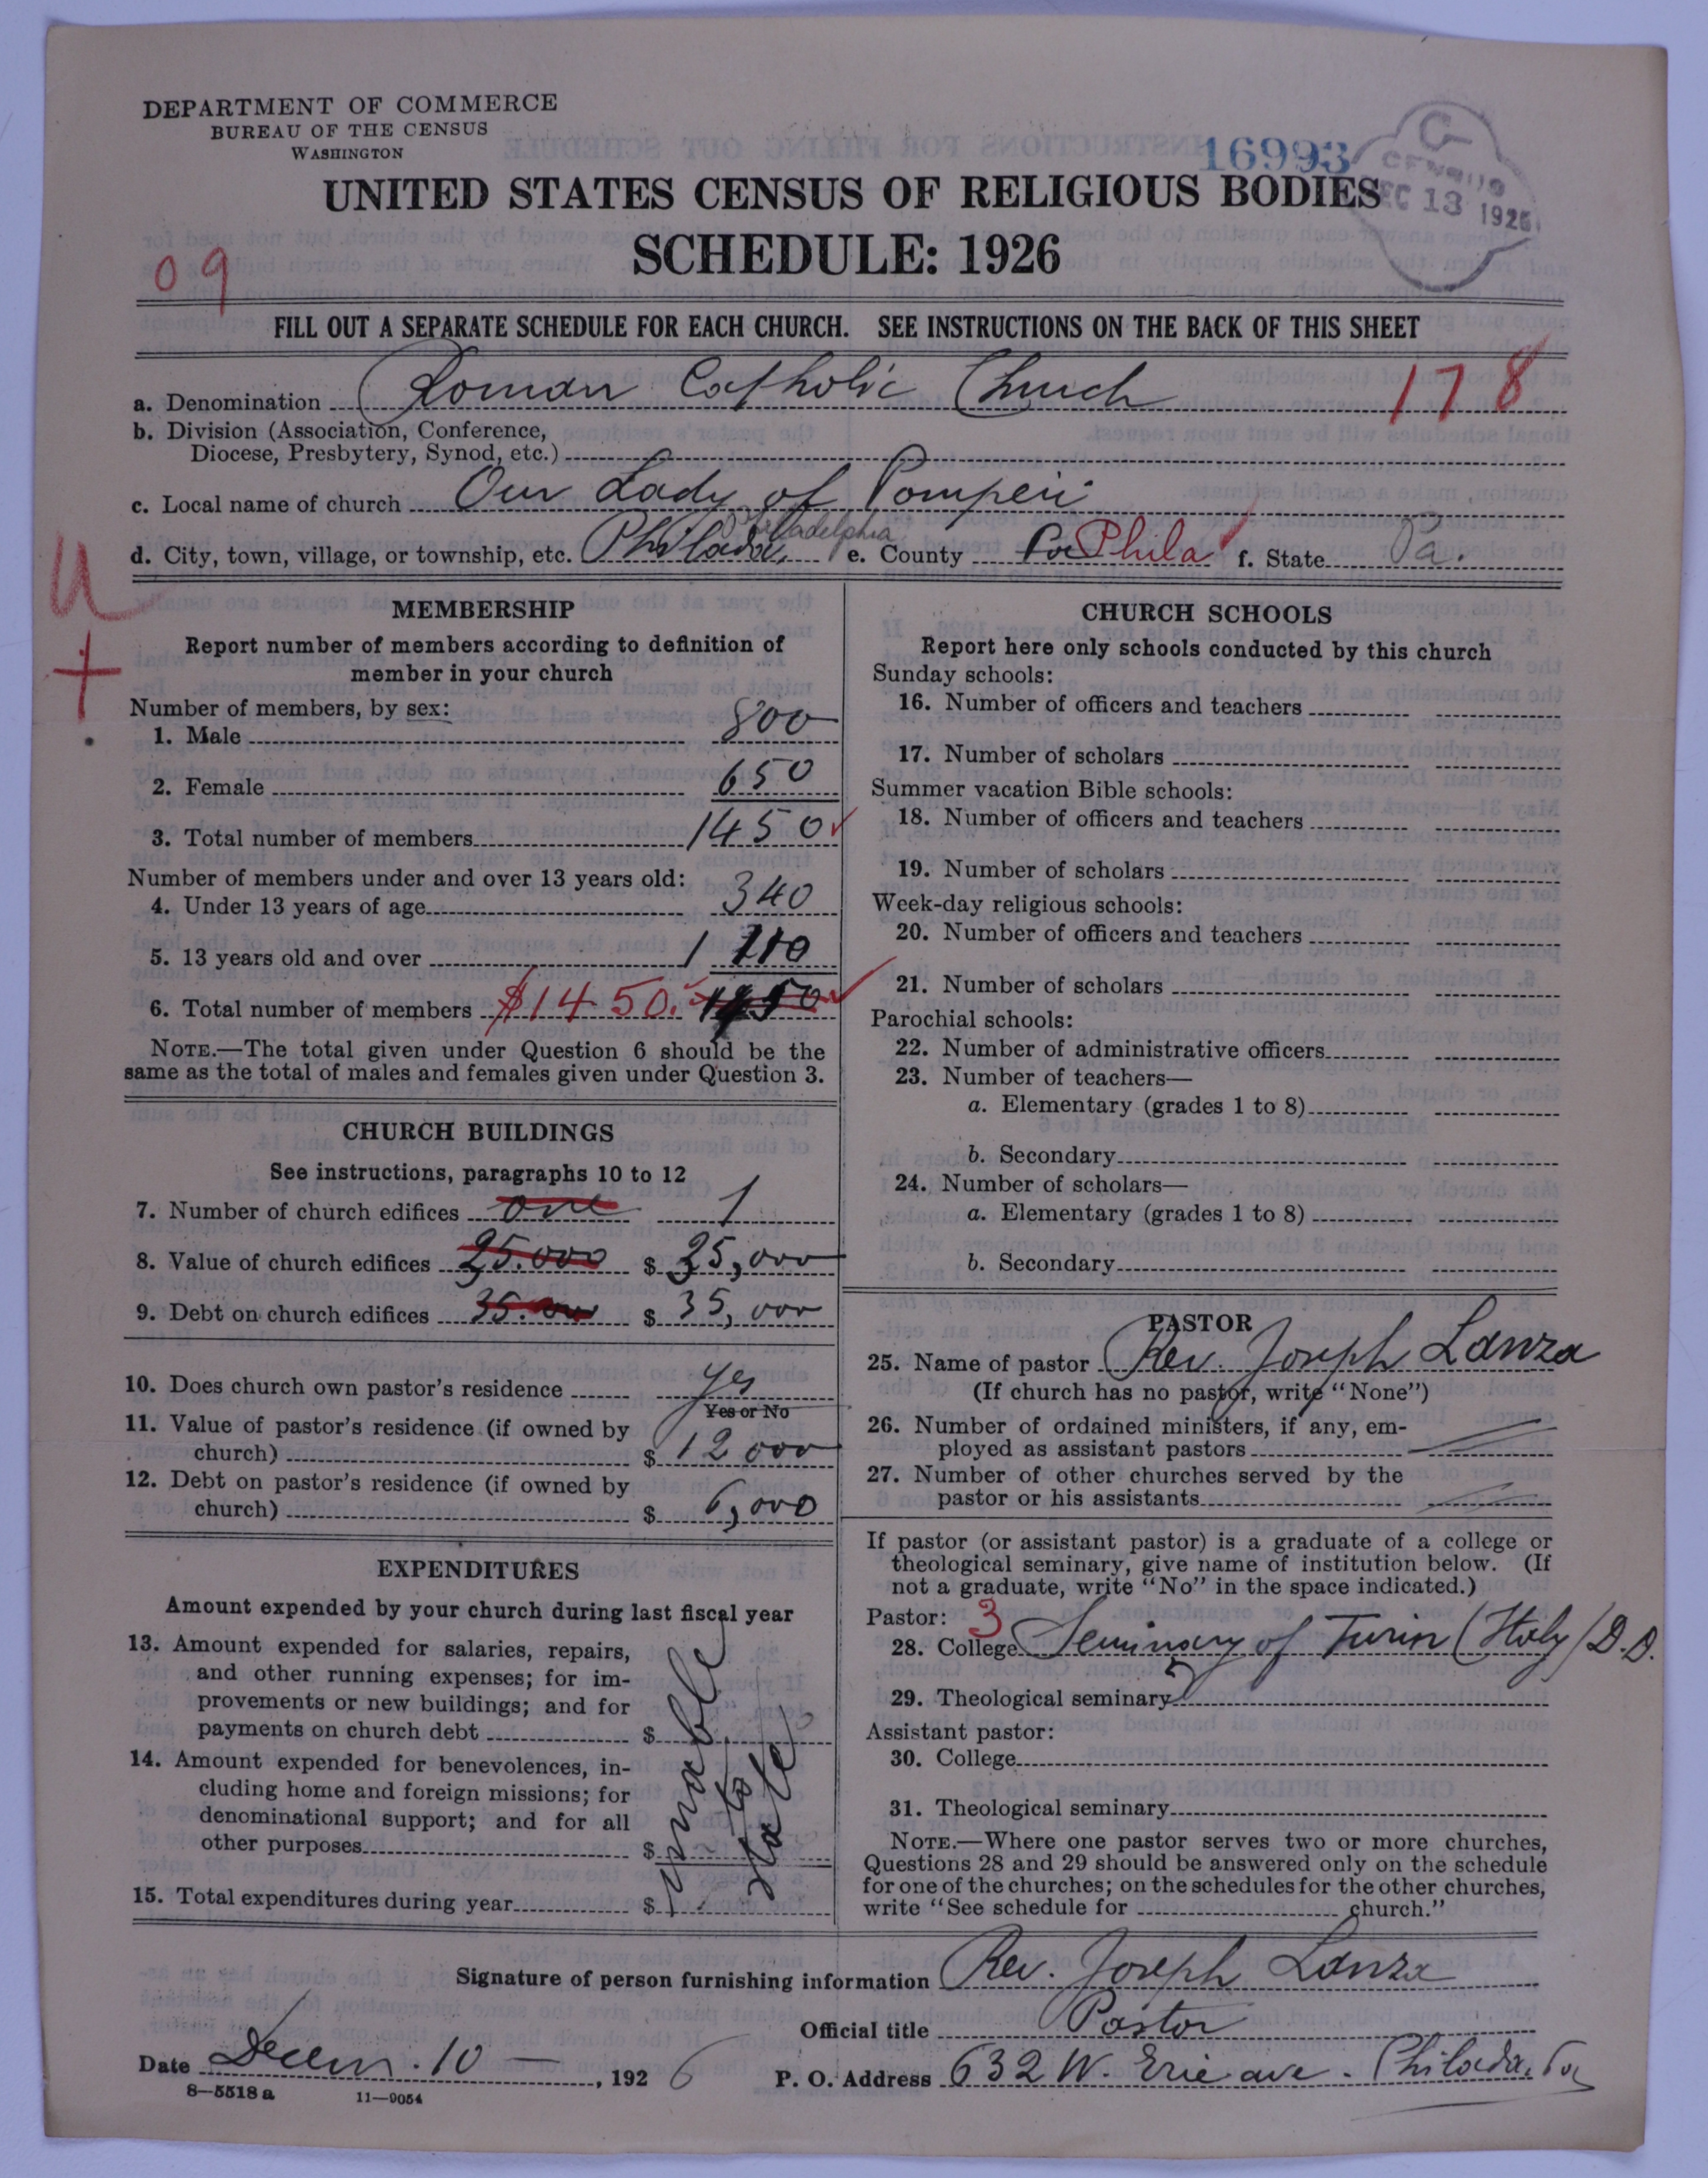 DEPARTMENT OF COMMERCE
BUREAU OF THE CENSUS
WASHINGTON
16993
CENSUS
DEC 13 1926
UNITED STATES CENSUS OF RELIGIOUS BODIES
SCHEDULE: 1926
09
FILL OUT A SEPARATE SCHEDULE FOR EACH CHURCH. SEE INSTRUCTIONS ON THE BACK OF THIS SHEET
a. Denomination Roman Catholic Church 178
b. Division (Association, Conference,
Diocese, Presbytery, Synod, etc.)
c. Local name of church Our Lady of Pompeii
d. City, town, village, or township, etc. Philada, Philadelphia e. County Pa Phila f. State Pa.
U
+
MEMBERSHIP
Report number of members according to definition of
member in your church
Number of members, by sex:
1. Male 800
2. Female 650
3. Total number of members 1450
Number of members under and over 13 years old:
4. Under 13 years of age 340
5. 13 years old and over 1 110
6. Total number of members $1450. 1450
NOTE.—The total given under Question 6 should be the
same as the total of males and females given under Question 3.
CHURCH BUILDINGS
See instructions, paragraphs 10 to 12
7. Number of church edifices one 1
8. Value of church edifices 25.000 $ 25,000
9. Debt on church edifices 35.000 $ 35,000
10. Does church own pastor's residence yes
Yes or No
11. Value of pastor's residence (if owned by
church) $ 12000
12. Debt on pastor's residence (if owned by
church) $ 6,000
EXPENDITURES
Amount expended by your church during last fiscal year
13. Amount expended for salaries, repairs,
and other running expenses; for im-
provements or new buildings; and for
payments on church debt $
14. Amount expended for benevolences, in-
cluding home and foreign missions; for
denominational support; and for all
other purposes $
15. Total expenditures during year $
unable
to
state
CHURCH SCHOOLS
Report here only schools conducted by this church
Sunday schools:
16. Number of officers and teachers
17. Number of scholars
Summer vacation Bible schools:
18. Number of officers and teachers
19. Number of scholars
Week-day religious schools:
20. Number of officers and teachers
21. Number of scholars
Parochial schools:
22. Number of administrative officers
23. Number of teachers—
a. Elementary (grades 1 to 8)
b. Secondary
24. Number of scholars—
a. Elementary (grades 1 to 8)
b. Secondary
PASTOR
25. Name of pastor Rev. Joseph Lanza
(If church has no pastor, write "None")
26. Number of ordained ministers, if any, em-
ployed as assistant pastors
27. Number of other churches served by the
pastor or his assistants
If pastor (or assistant pastor) is a graduate of a college or
theological seminary, give name of institution below. (If
not a graduate, write "No" in the space indicated.)
Pastor: 3
28. College Seminary of Turin (Italy) D.D.
29. Theological seminary
Assistant pastor:
30. College
31. Theological seminary
NOTE.—Where one pastor serves two or more churches,
Questions 28 and 29 should be answered only on the schedule
for one of the churches; on the schedules for the other churches,
write "See schedule for church."
Signature of person furnishing information Rev. Joseph Lanza
Official title Pastor
Date Decem. 10 —, 1926 P. O. Address 632 W. Erie ave. Philada. Pa
8—5518 a 11—9054